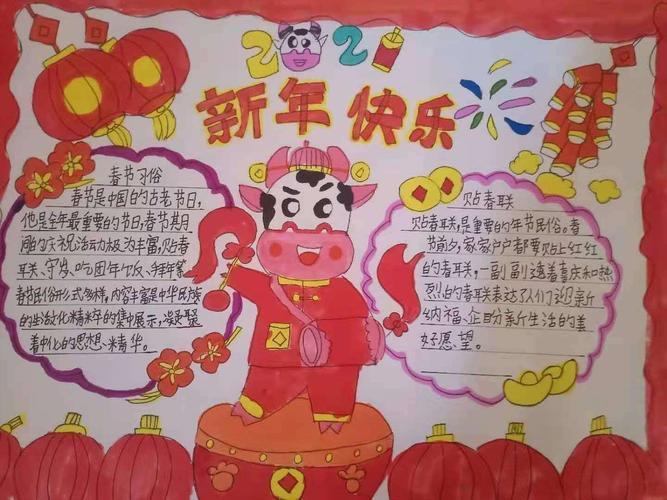 2021
新年快乐
春节习俗
春节是中国的古老节日,
他是全年最重要的节日,春节期
间的庆祝活动极为丰富,贴春
联、守岁、吃团年饭、拜年等
春节民俗形式多样,内容丰富是中华民族
的生活文化精粹的集中展示,凝聚
着中化的思想、精华。
贴春联
贴春联,是重要的年节民俗。春
节前夕,家家户户都要贴上红红
的春联,一副副透着喜庆和热
烈的春联表达了人们迎新
纳福、企盼新生活的美
好愿望。